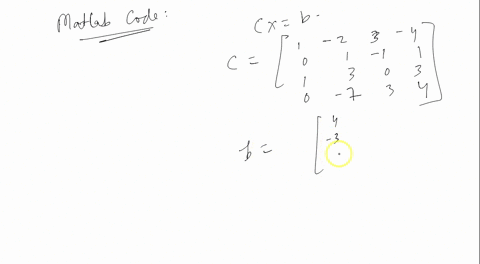 Matlab Code:
Cx = b.
C = [ 1 -2 3 -4
0 1 -1 1
1 3 0 3
0 -7 3 4 ]
b = [ 4
-3